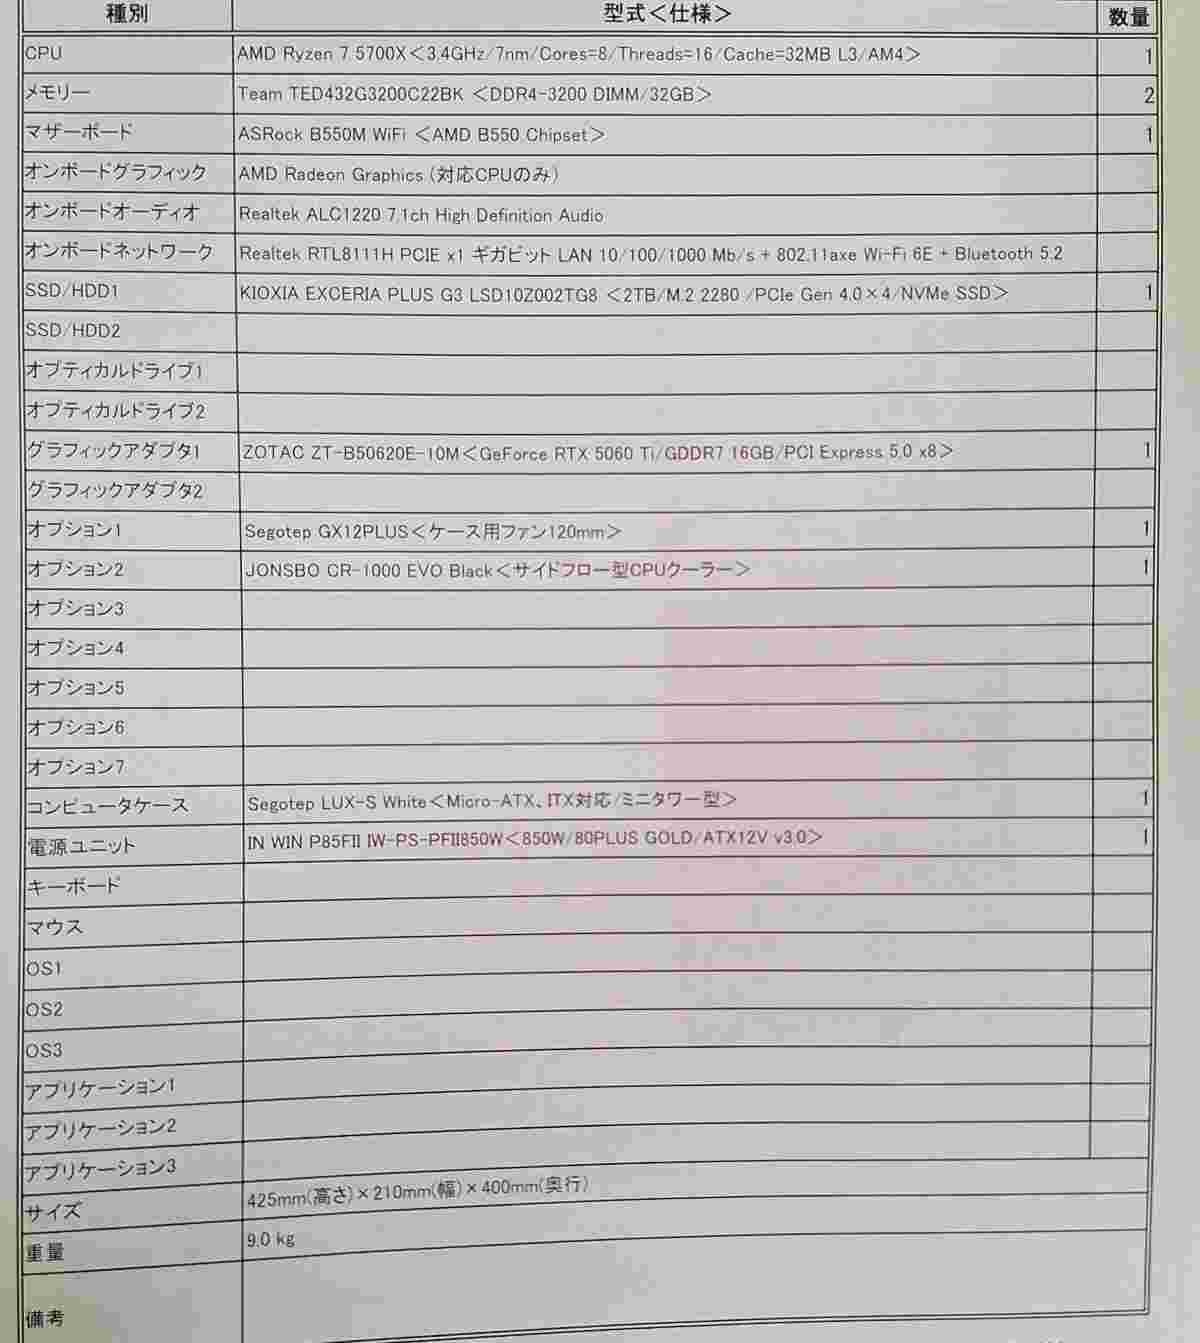 種別 型式＜仕様＞ 数量
CPU AMD Ryzen 7 5700X＜3.4GHz/7nm/Cores=8/Threads=16/Cache=32MB L3/AM4＞ 1
メモリー Team TED432G3200C22BK ＜DDR4-3200 DIMM/32GB＞ 2
マザーボード ASRock B550M WiFi ＜AMD B550 Chipset＞ 1
オンボードグラフィック AMD Radeon Graphics (対応CPUのみ)
オンボードオーディオ Realtek ALC1220 7.1ch High Definition Audio
オンボードネットワーク Realtek RTL8111H PCIE x1 ギガビット LAN 10/100/1000 Mb/s + 802.11axe Wi-Fi 6E + Bluetooth 5.2
SSD/HDD1 KIOXIA EXCERIA PLUS G3 LSD10Z002TG8 ＜2TB/M.2 2280 /PCIe Gen 4.0×4/NVMe SSD＞ 1
SSD/HDD2
オプティカルドライブ1
オプティカルドライブ2
グラフィックアダプタ1 ZOTAC ZT-B50620E-10M＜GeForce RTX 5060 Ti/GDDR7 16GB/PCI Express 5.0 x8＞ 1
グラフィックアダプタ2
オプション1 Segotep GX12PLUS＜ケース用ファン120mm＞ 1
オプション2 JONSBO CR-1000 EVO Black＜サイドフロー型CPUクーラー＞ 1
オプション3
オプション4
オプション5
オプション6
オプション7
コンピュータケース Segotep LUX-S White＜Micro-ATX、ITX対応/ミニタワー型＞ 1
電源ユニット IN WIN P85FII IW-PS-PFII850W＜850W/80PLUS GOLD/ATX12V v3.0＞ 1
キーボード
マウス
OS1
OS2
OS3
アプリケーション1
アプリケーション2
アプリケーション3
サイズ 425mm(高さ)×210mm(幅)×400mm(奥行)
重量 9.0 kg
備考